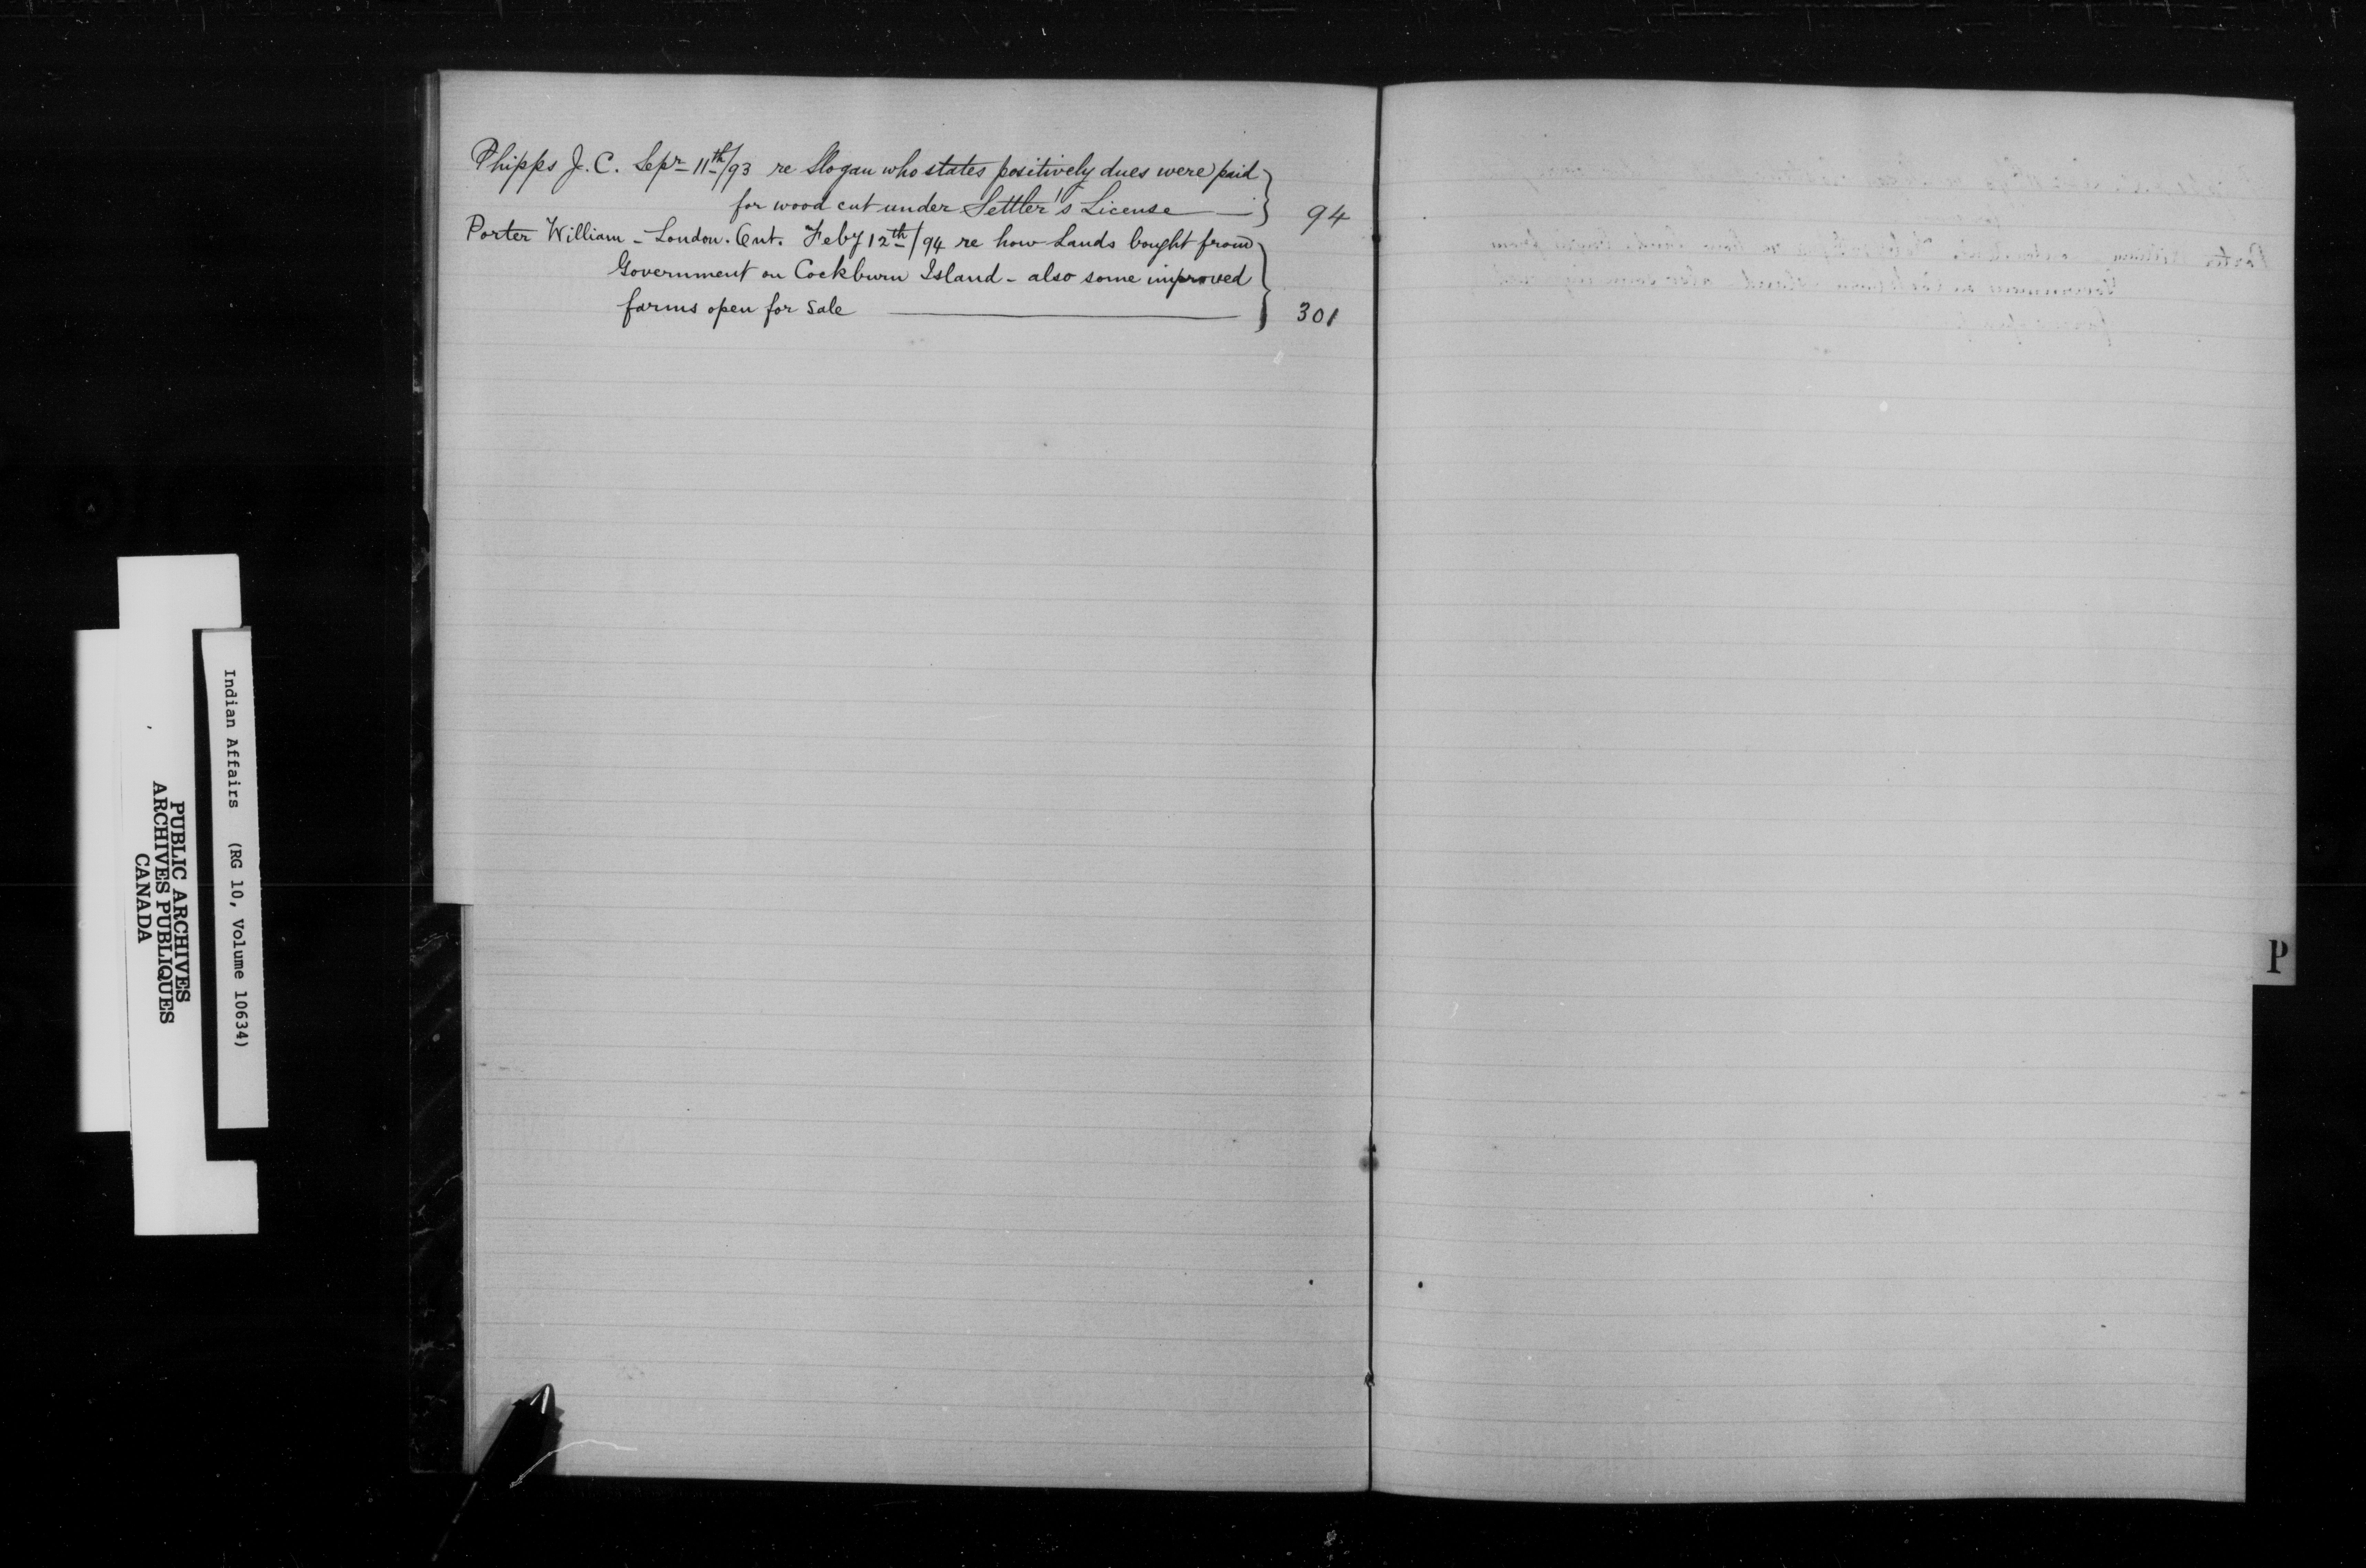 Phipps J. C. Sepr 11th/93 re Slogan who states positively dues were paid
for wood cut under Settler's License — 94
Porter William - London. Ont. Feby 12th/94 re how Lands bought from
Government on Cockburn Island - also some improved
farms open for sale — 301
P
Indian Affairs (RG 10, Volume 10634)
PUBLIC ARCHIVES
ARCHIVES PUBLIQUES
CANADA